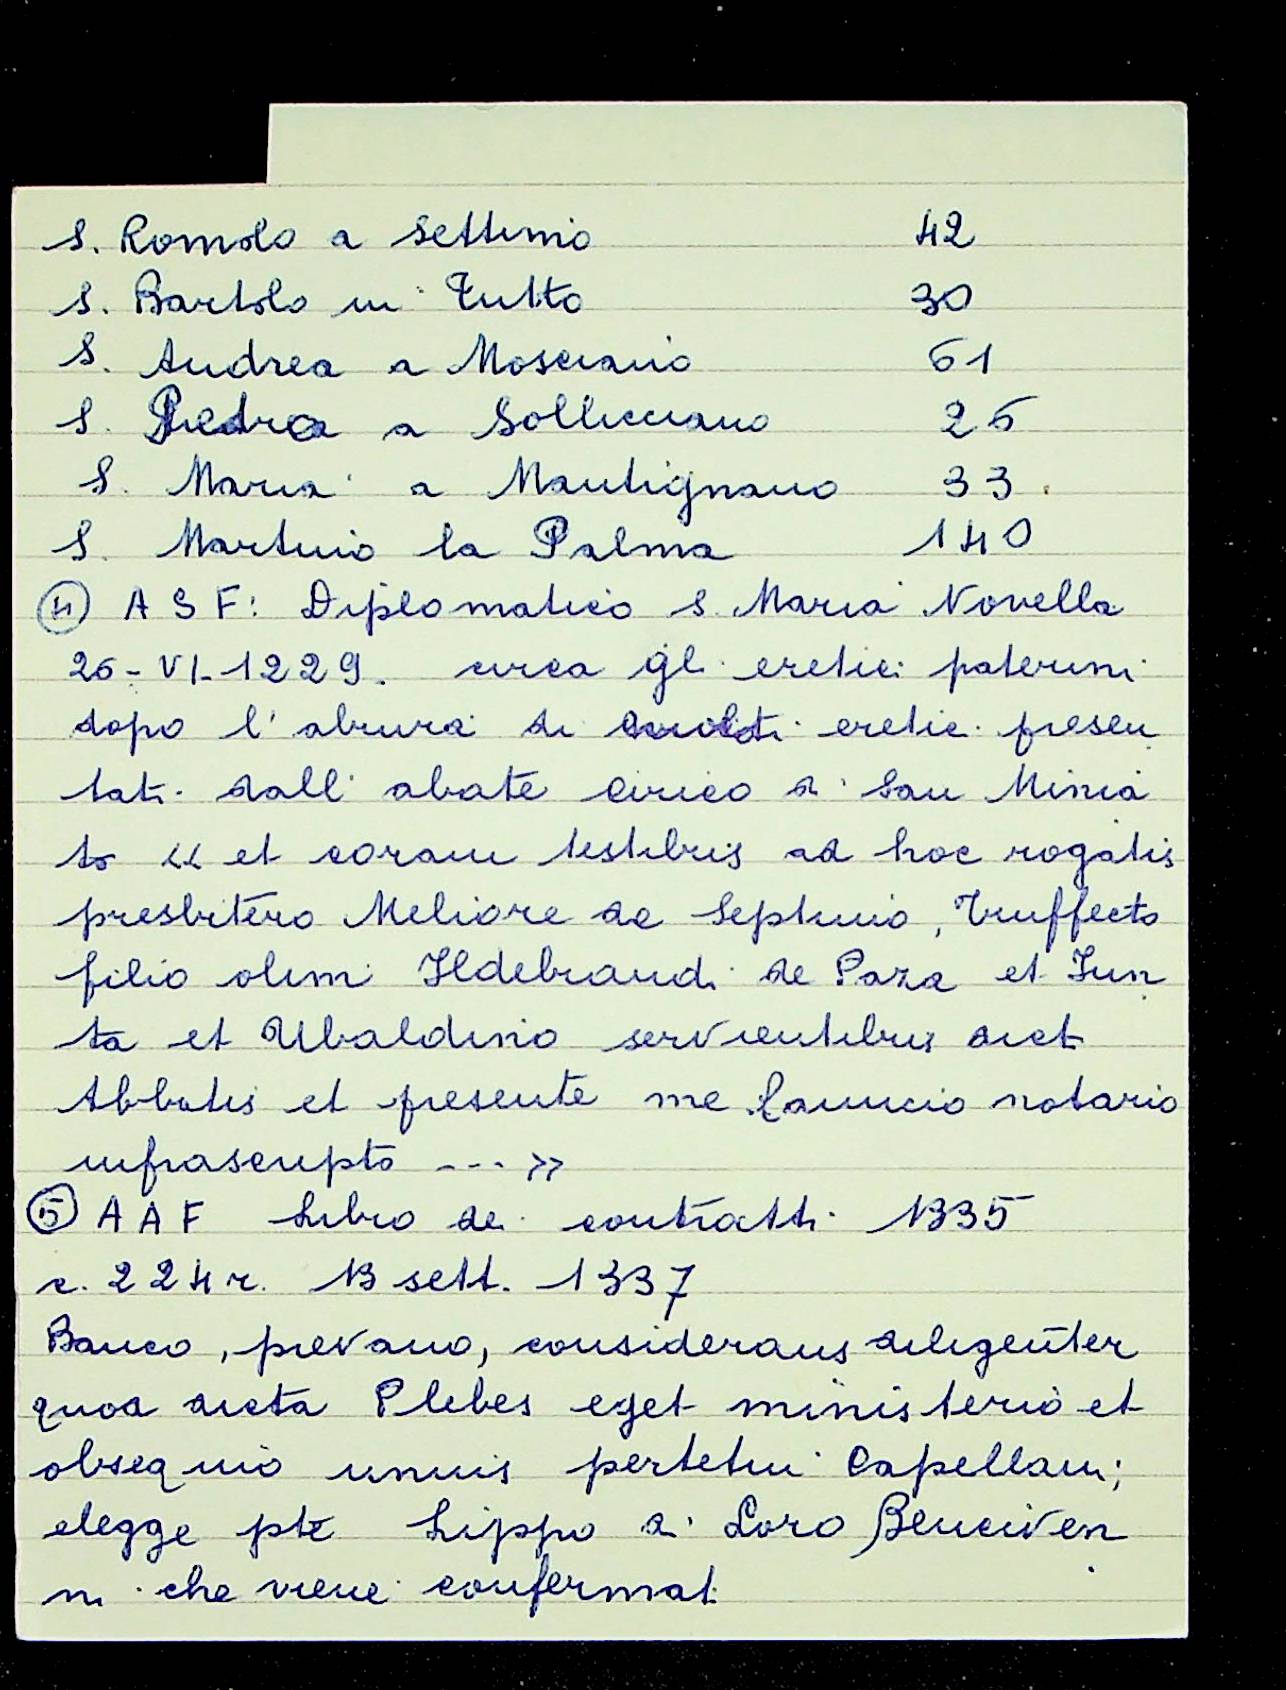 S. Romolo a Settimo 42
S. Bartolo in Tutto 30
S. Andrea a Mosciano 61
S. Piedro a Sollicciano 26
S. Maria a Mantignano 33
S. Martino la Palma 140
④ ASF: Diplomatico S. Maria Novella
26-VI-1229. circa gli eretici paterini
dopo l'abiura di eretici presen
tati dall' abate di San Minia
to << et coram testibus ad hoc rogatis
presbitero Meliore de Septimo, Truffecto
filio olim Ildebrandi de Paza et Iun
ta et Ubaldino servientibus dict
Abbatis et presente me notario
infrascripto --- >>
⑤ AAF Libro dei contratti 1335
c. 224 r. 13 sett. 1337
Banco, pievano, considerans diligenter
quod dicta Plebes eget ministerio et
obsequio unius Capellani;
elegge pte Lippo di Loro Benciven
ni che viene confermat